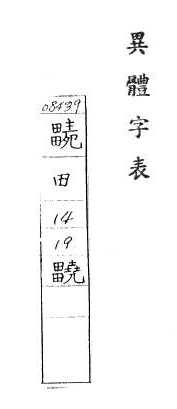 異體字表
08439
田
14
19